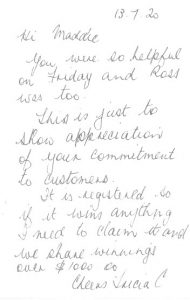 13.7.20
Hi Maddie
You were so helpful
on Friday and Ross
was too.
This is just to
show appreciation
of your commitment
to customers.
It is registered so
if it wins anything
I need to claim it and
we share winnings
over $1000.00
Cheers Tricia C